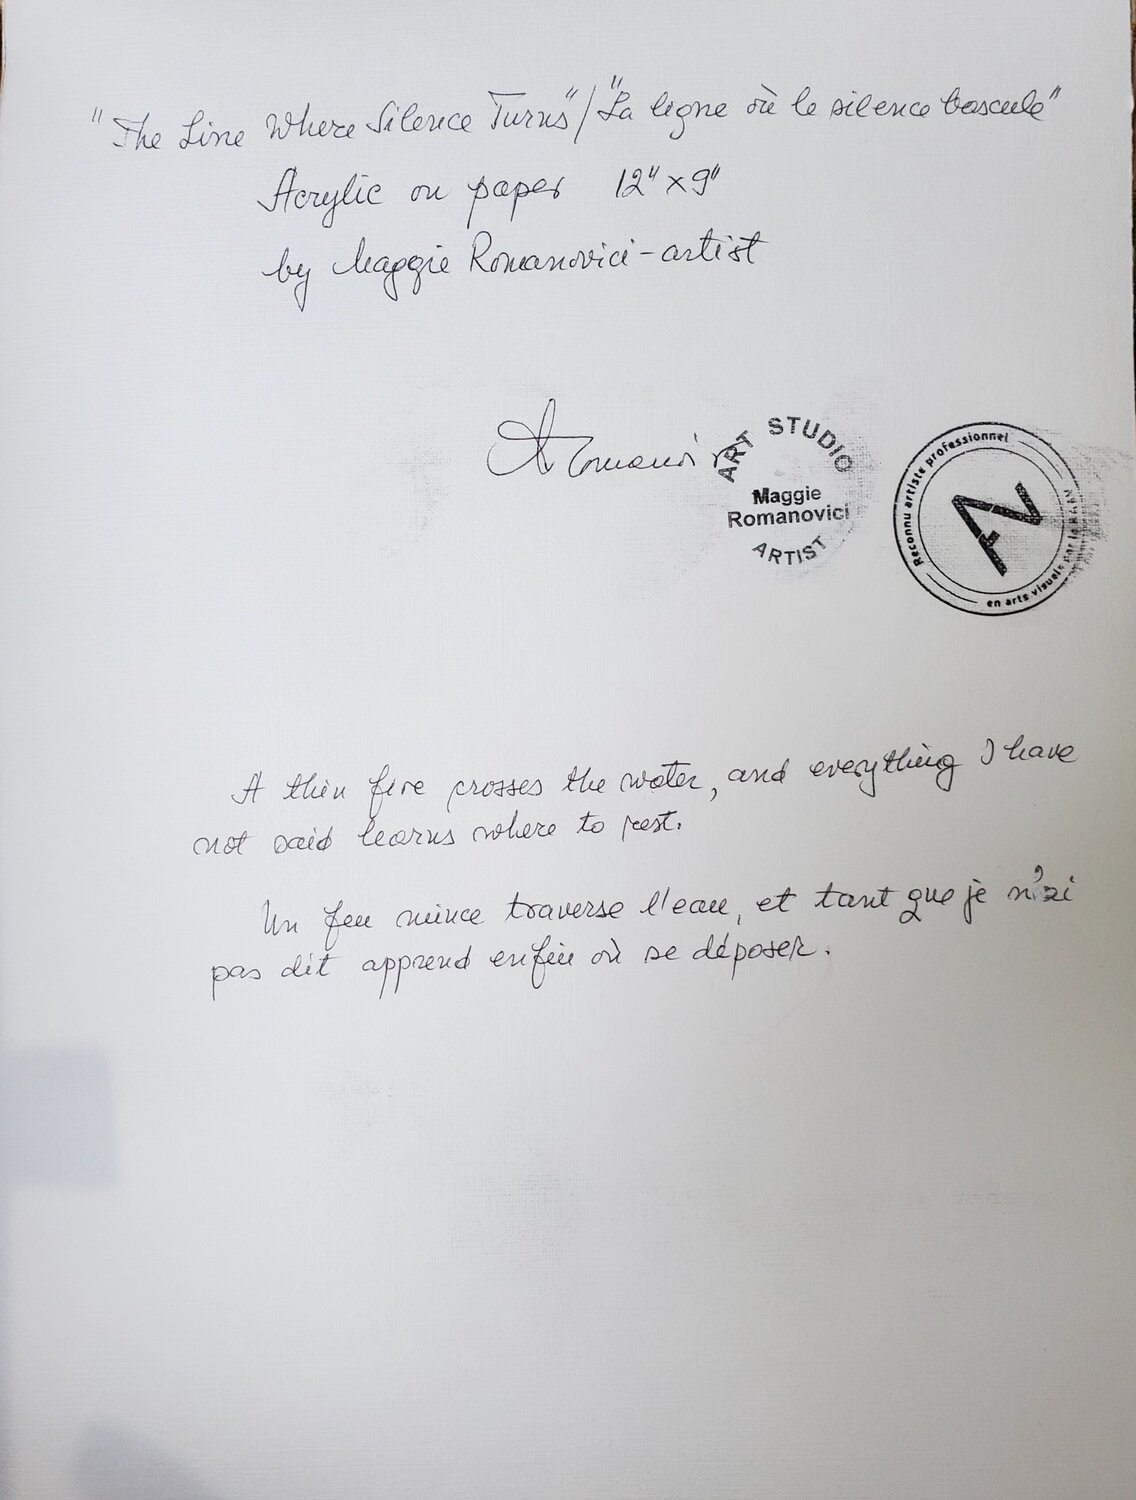 "The Line Where Silence Turns"/"La ligne où le silence bascule"
Acrylic on paper 12"x9"
by Maggie Romanovici-artist
ART STUDIO
Maggie
Romanovici
ARTIST
Reconnu artiste professionnel
en arts visuels par le RAAV
A thin fire crosses the water, and everything I have
not said learns where to rest.
Un feu mince traverse l'eau, et tant que je n'ai
pas dit apprend enfin où se déposer.